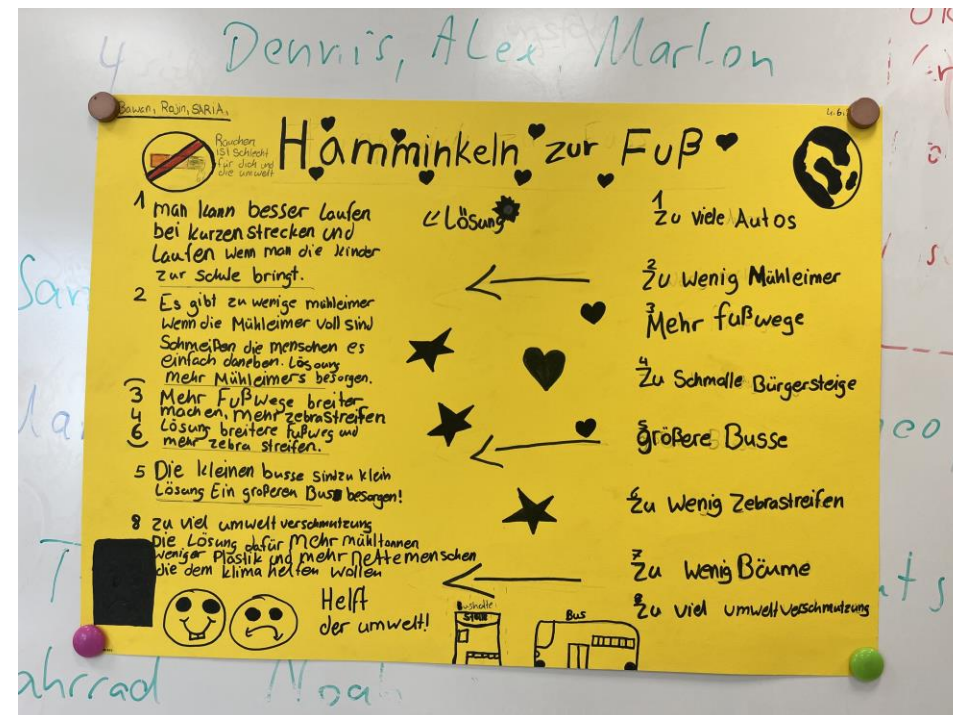 4
Dennis, Alex, Marlon
Bawan, Rojin, SARIA,
4.6.
Rauchen
ist schlecht
für dich und
die umwelt
Hamminkeln zur Fuß
1 man kann besser laufen
bei kurzen strecken und
Laufen wenn man die kinder
zur Schule bringt.
2 Es gibt zu wenige mühleimer
Wenn die Mühleimer voll sind
Schmeißen die menschen es
einfach daneben. Lösoung
mehr Mühleimers besorgen.
3 Mehr Fußwege breiter
4 machen, mehr zebrastreifen
6 Lösung breitere fußweg und
mehr zebra streifen.
5 Die kleinen busse sind zu klein
Lösung Ein großeren Bus besorgen!
8 zu viel umweltverschmutzung
Die Lösung dafür mehr mühltonnen
weniger Plastik und mehr nette menschen
die dem klima helfen wollen
Helft
der umwelt!
Lösung
1 Zu viele Autos
2 Zu wenig Mühleimer
3 Mehr fußwege
4 Zu Schmalle Bürgersteige
5 größere Busse
6 Zu Wenig Zebrastreifen
7 Zu wenig Bäume
8 Zu viel umweltverschmutzung
Bus
ahrrad Noah